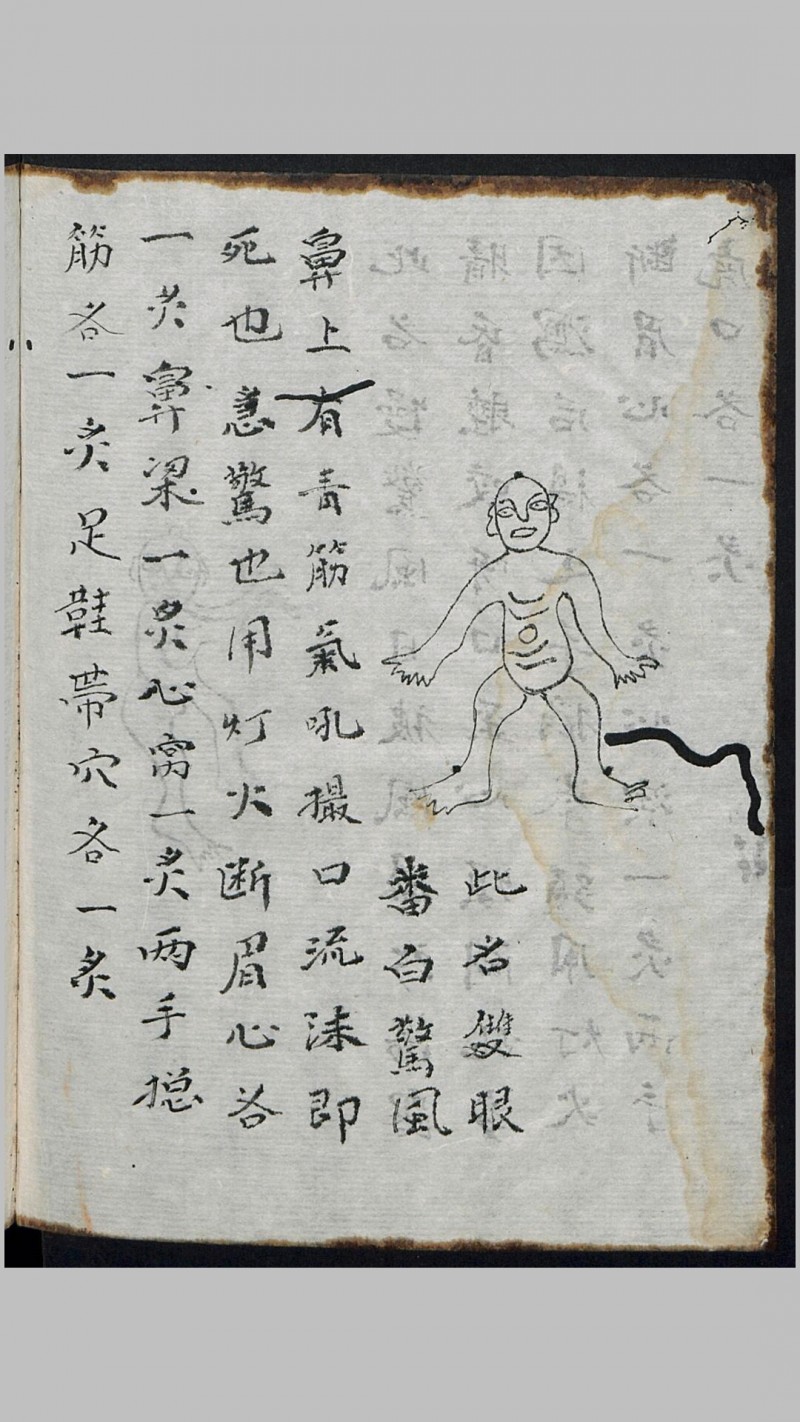 此名雙眼
番白驚風
鼻上有青筋氣吼撮口流沫即
死也急驚也用灯火断眉心各
一炙鼻梁一炙心窝一炙两手総
筋各一炙足鞋帶穴各一炙